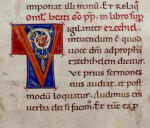 imponat illi manū. Et Reliq̄
oml̄. beati ḡḡ. pp̄. in libro sup
Vigilanter ezechiel
intuendum ē q
uoc dn̄i adprophā
ezechihelem dicitur.
Ut prius sermones
eius audiat. et post
modū loquatur. Audimus eni
uerba dei si facim᷒. Et tūc ea p